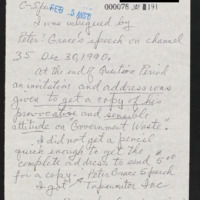 C-Span
FEB 5 1991
000078
I was intrigued by
Peter Grace's speech on channel
35 Dec 30, 1990.
At the end of Question Period
an invitation and address was
given to get a copy of his
provocative and sensible
attitude on Government Waste.
I did not get a pencil
quick enough to get the
complete address to send 5.00
for a copy. Peter Grace Speech
I got
Inc